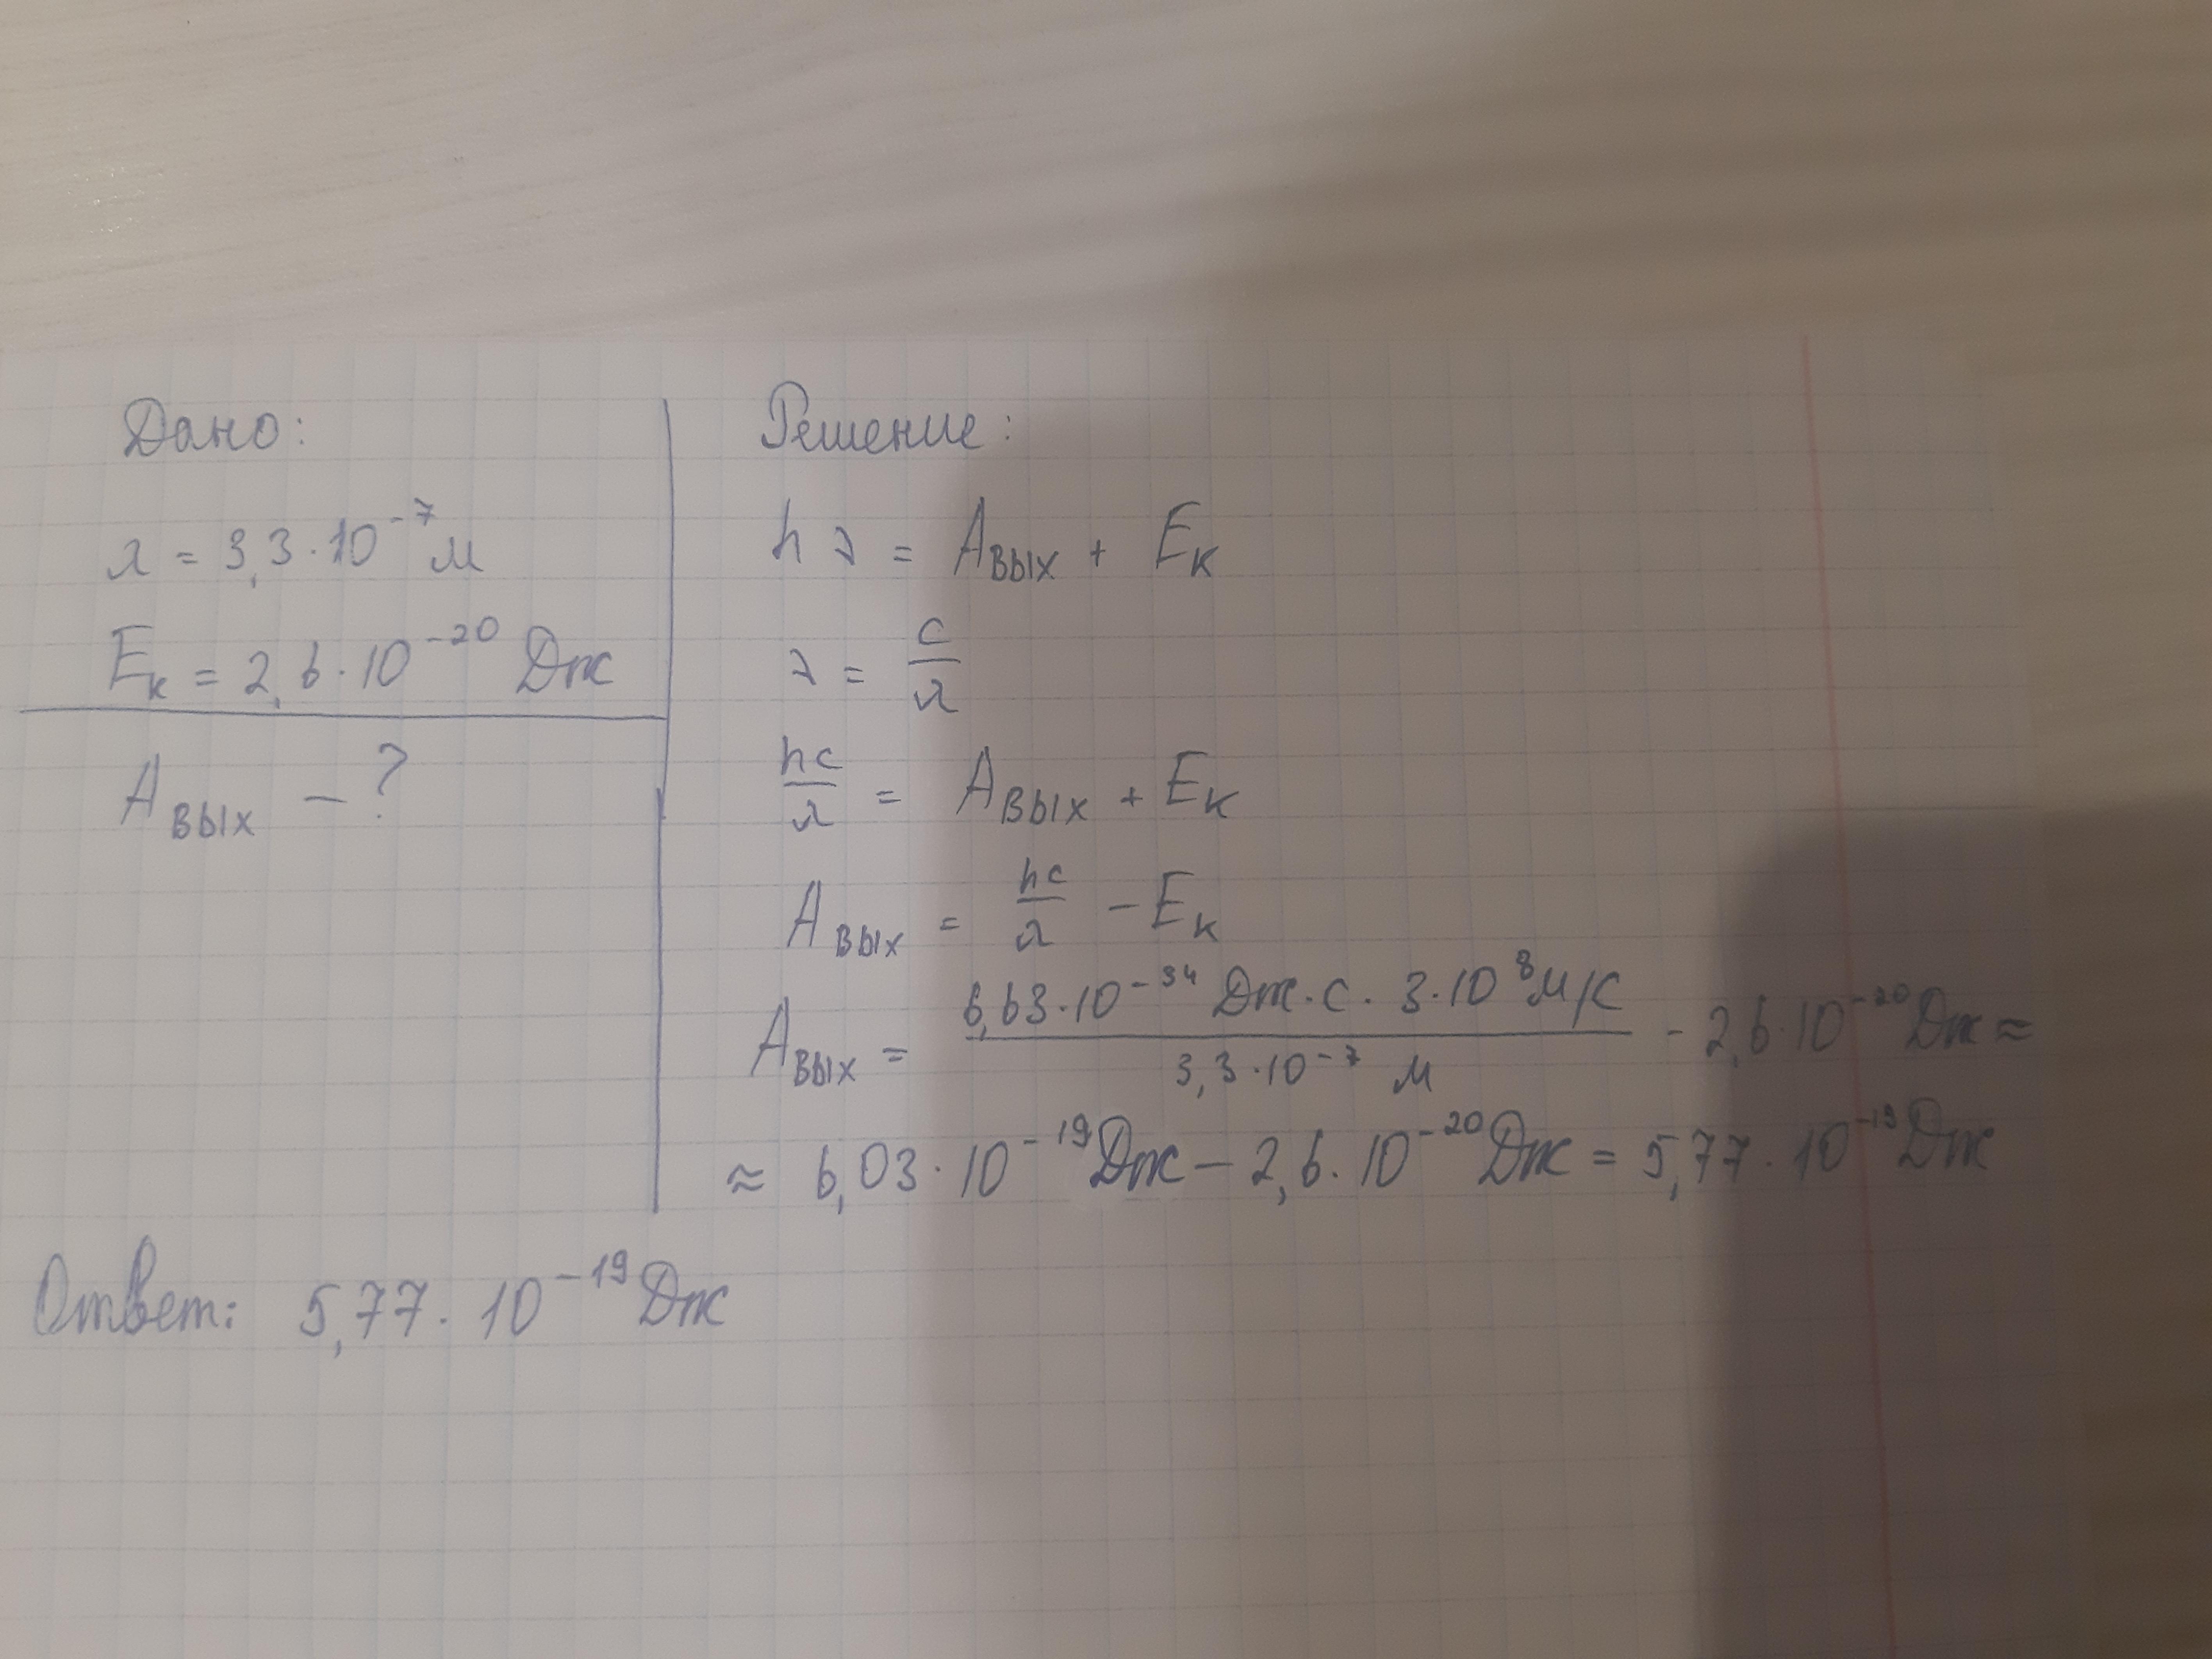 Дано:
λ = 3,3 · 10⁻⁷ м
Eк = 2,6 · 10⁻²⁰ Дж
Aвых – ?
Решение:
h ν = Aвых + Eк
ν = c/λ
hc/λ = Aвых + Eк
Aвых = hc/λ – Eк
Aвых = (6,63 · 10⁻³⁴ Дж · с · 3 · 10⁸ м/с)/(3,3 · 10⁻⁷ м) - 2,6 · 10⁻²⁰ Дж ≈
≈ 6,03 · 10⁻¹⁹ Дж – 2,6 · 10⁻²⁰ Дж = 5,77 · 10⁻¹⁹ Дж
Ответ: 5,77 · 10⁻¹⁹ Дж